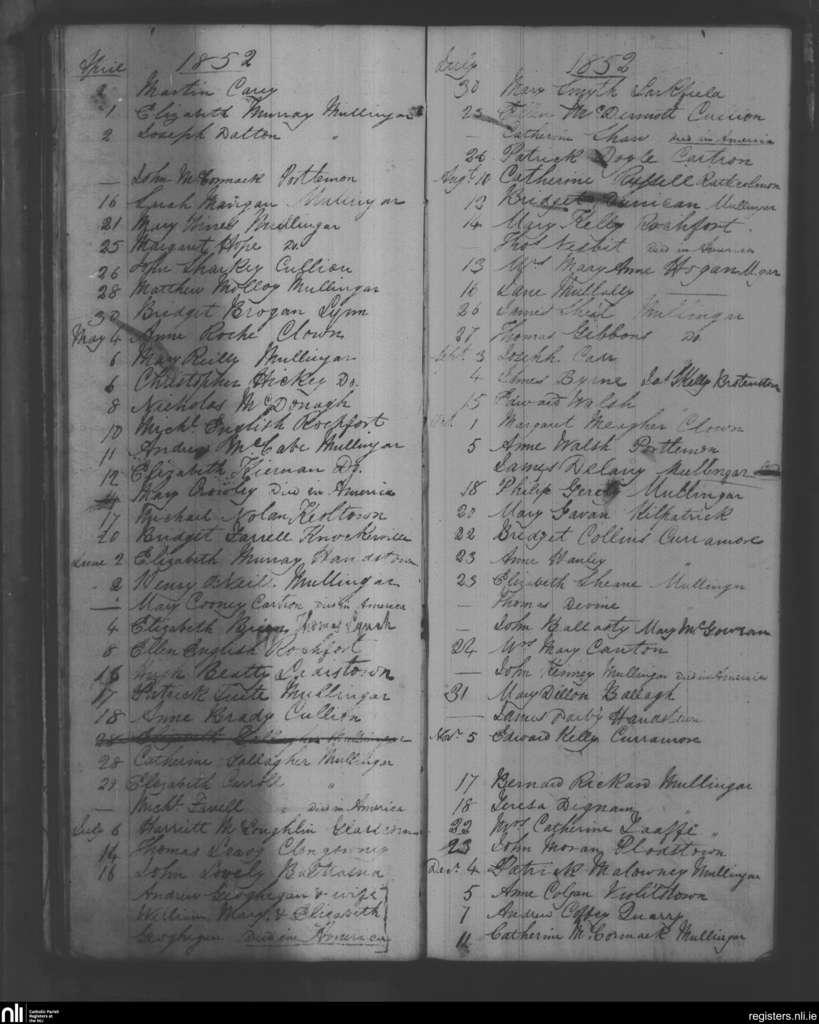 April 1852
Martin Carey
1 Elizabeth Murray Mullingar
2 Joseph Dalton "
— John McCormack Portlemon
16 Sarah Mangan Mullingar
21 Mary Mullingar
25 Margaret Hope Do.
26 John Sharkey Cullion
28 Matthew Molloy Mullingar
30 Bridget Brogan Lynn
May 4 Anne Roche Clown
6 Mary Reilly Mullingar
6 Christopher Hickey Do.
8 Nicholas McDonagh
10 Michl. English Rochfort
11 Andrew McCabe Mullingar
12 Elizabeth Kiernan Do.
14 Mary Rowley Died in America
17 Michael Nolan Keoltown
20 Bridget Farrell Knockerville
June 2 Elizabeth Murray Handstown
2 Henry O'Neill. Mullingar
— Mary Cooney Cartron Died in America
4 Elizabeth Thomas Lynch
8 Ellen English Rochfort
16 Beatty Ladistown
17 Patrick Mullingar
18 Anne Brady Cullion
28 Gallagher Mullingar
28 Catherine Gallagher Mullingar
29 Elizabeth Carroll "
— Michl. " Died in America
July 6 Harriett McLoughlin
14 Thomas Leavy Clongowney
16 John Lovely
Andrew Geoghegan & wife
William, Mary, & Elizabeth
Geoghegan Died in America
July 1852
30 Mary Smyth
25 Ellen McDermott Cullion
— Catherine Shaw Died in America
26 Patrick Doyle Cartron
Augt. 10 Catherine Russell Rathcolmon
12 Bridget Duncan Mullingar
14 Mary Kelly Rochfort.
— Thos. Nesbit Died in America
13 Mrs. Mary Anne Hogan
16 Jane Mullally
26 James Mullingar
27 Thomas Gibbons Do.
Sept. 3 Joseph Carr
4 James Byrne
15 Edward Walsh
Oct. 1 Margaret Meagher Clown
5 Anne Walsh Portlemon
James Delany Mullingar
18 Philip Mullingar
20 Mary Gavan Kilpatrick
22 Bridget Collins Curramore
23 Anne Hanley "
23 Elizabeth Sheane Mullingar
— Thomas Devine
— John Mary McGowran
24 Mrs. Mary Canton
— John Kenney Mullingar Died in America
31 Mary Dillon Ballagh
— James Darby Handstown
Novr. 5 Edward Kelly Curramore
17 Bernard Rickard Mullingar
18 Teresa Dignam "
22 Mrs. Catherine "
23 John Moran Plodstown
Decr. 4 Patrick Malowney Mullingar
5 Anne Colgan Violitstown
7 Andrew Coffey Quarry
11 Catherine McCormack Mullingar
nli
Catholic Parish
Registers at
the NLI
registers.nli.ie